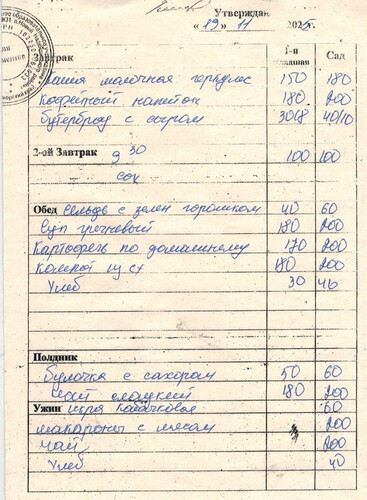 Утверждаю
«19» 11 2025
1-я Сад
младшая
Завтрак
Каша молочная геркулес 150 180
Кофейный напиток 180 200
Бутерброд с сыром 30/8 40/10
2-ой Завтрак 9 30 100 100
сок
Обед Сельдь с зелен горошком 40 60
Суп гречневый 180 200
Картофель по домашнему 170 200
Компот из сх 180 200
Хлеб 30 40
Полдник
Булочка с сахаром 50 60
Чай сладкий 180 200
Ужин икра кабачковая 60
макароны с мясом 200
чай 200
Хлеб 40